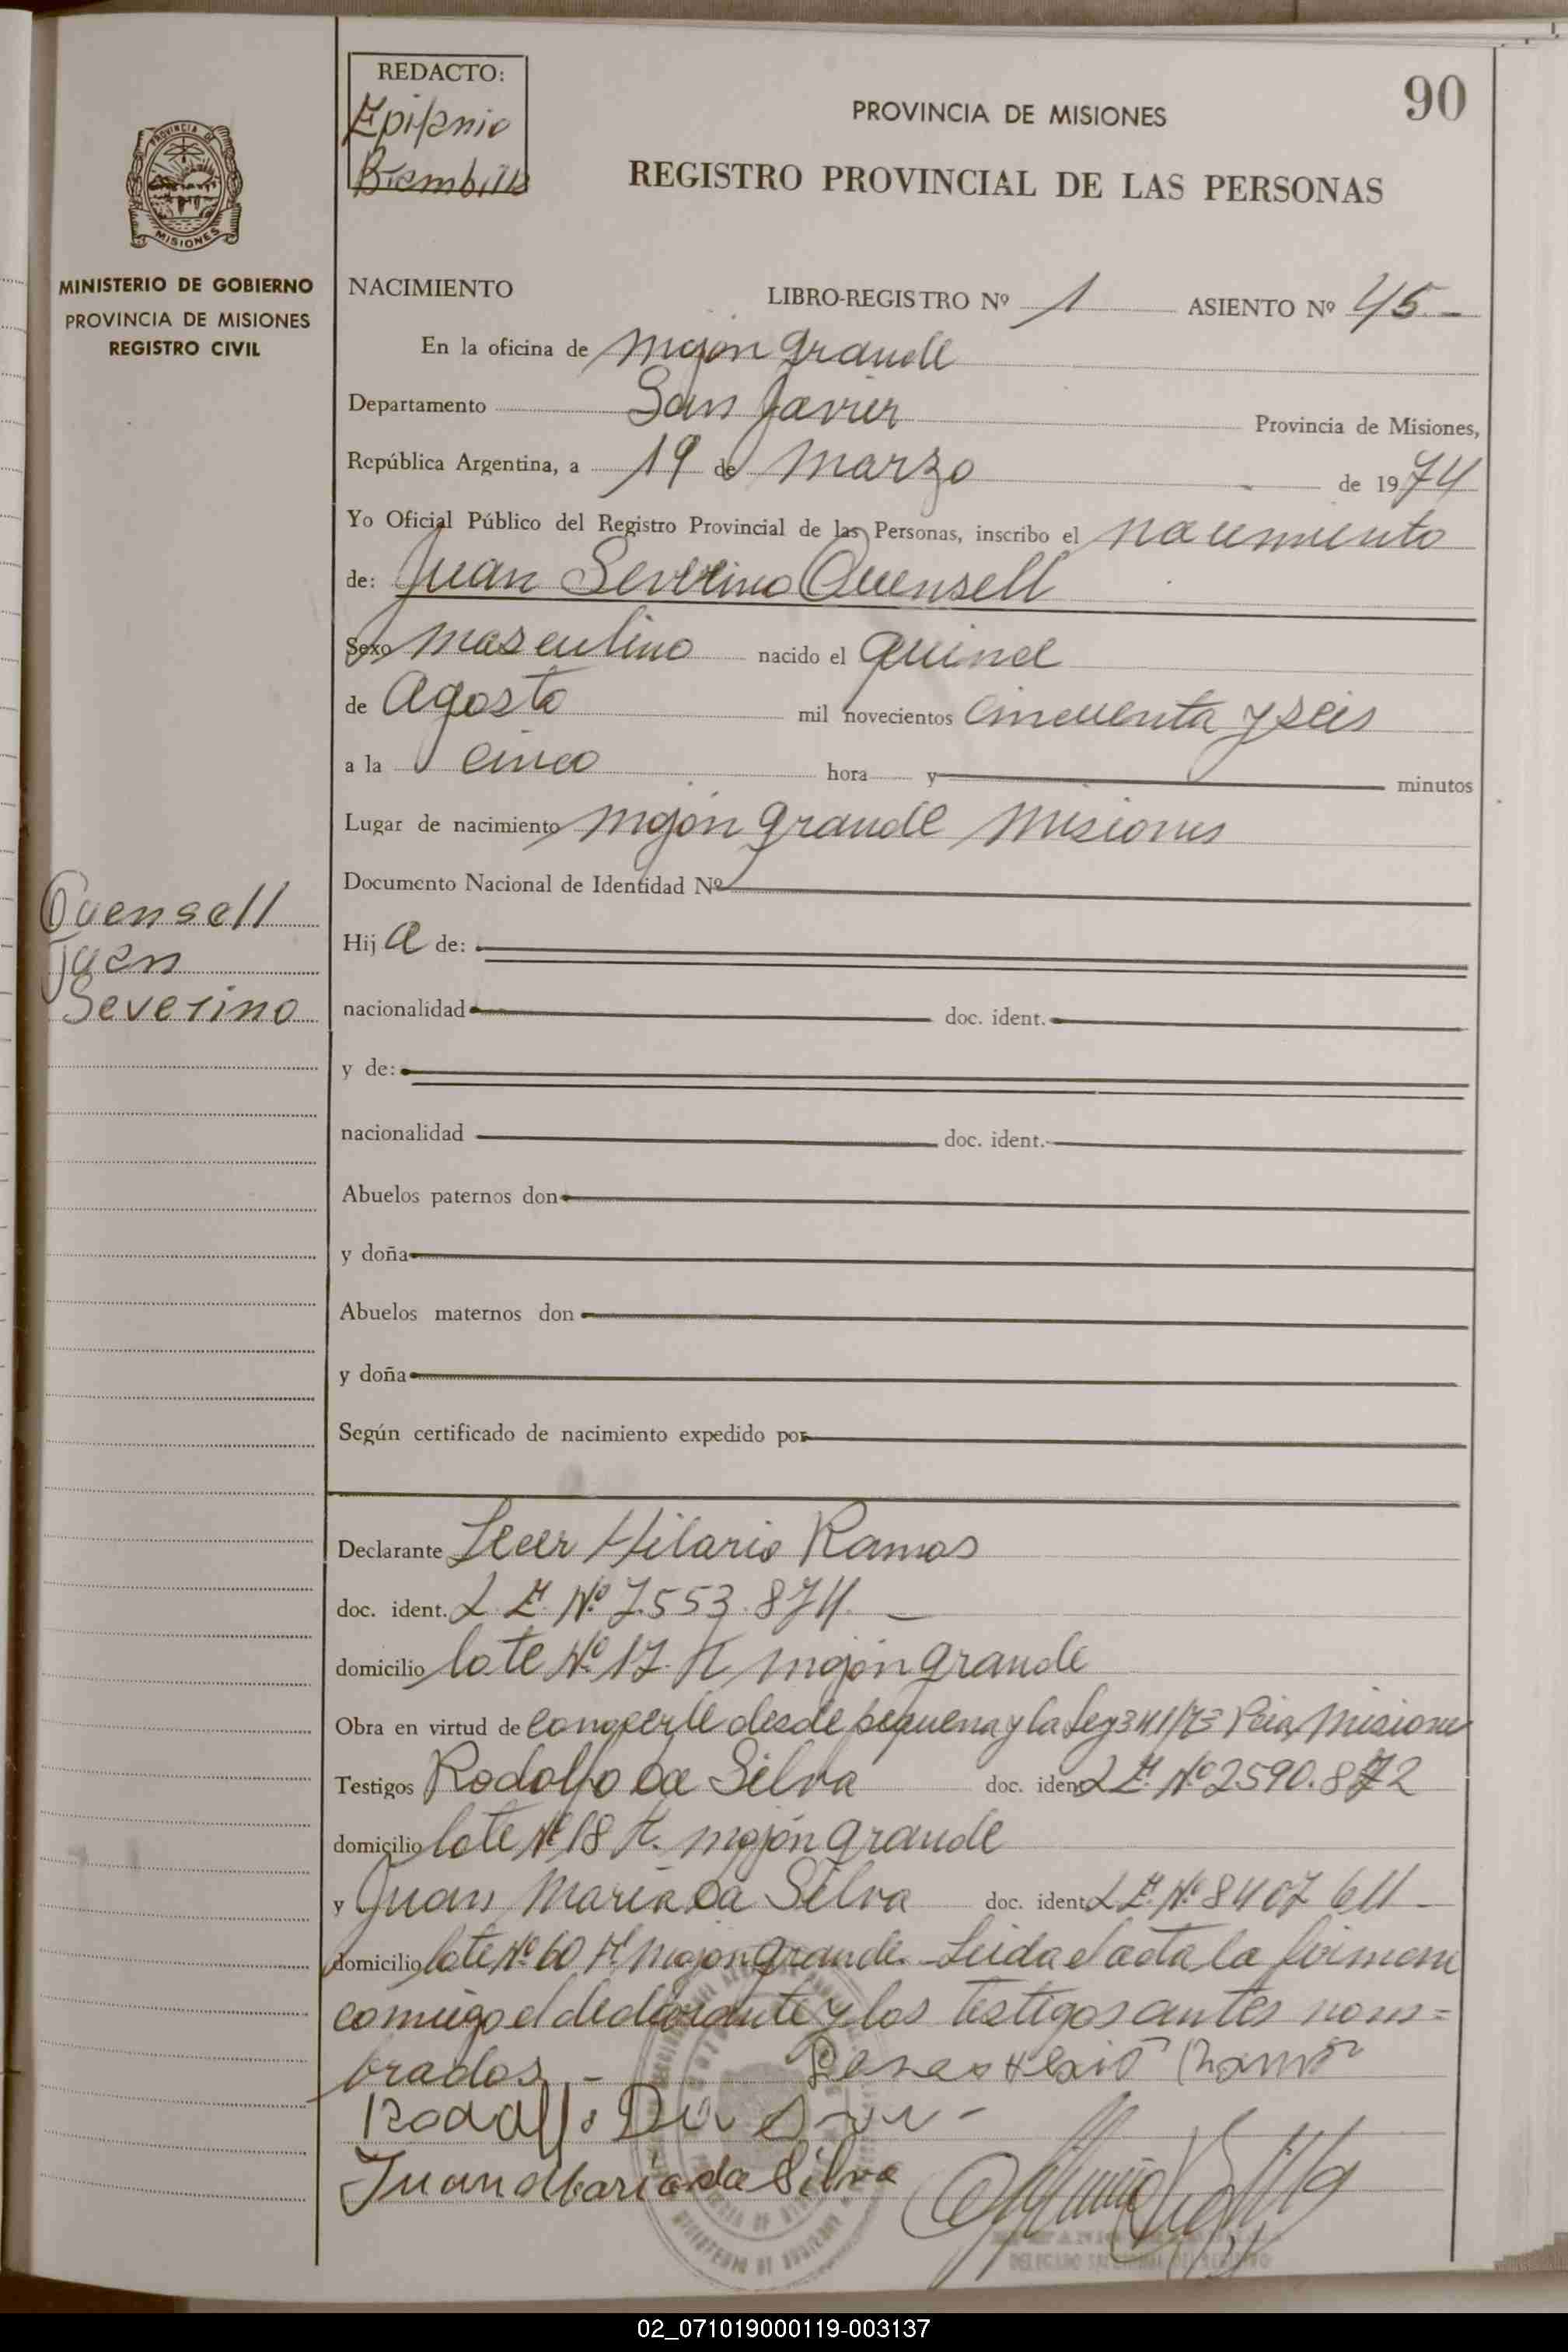 REDACTO:
Epifanio
Brembilla
PROVINCIA DE MISIONES
90
REGISTRO PROVINCIAL DE LAS PERSONAS
PROVINCIA DE
MISIONES
MINISTERIO DE GOBIERNO
PROVINCIA DE MISIONES
REGISTRO CIVIL
NACIMIENTO LIBRO-REGISTRO Nº 1 ASIENTO Nº 45.-
En la oficina de Mojón grande
Departamento San Javier Provincia de Misiones,
República Argentina, a 19 de Marzo de 1974
Yo Oficial Público del Registro Provincial de las Personas, inscribo el nacimiento
de: Juan Severino Quensell
Sexo masculino nacido el quince
de Agosto mil novecientos cincuenta y seis
a la cinco hora y minutos
Lugar de nacimiento Mojón grande Misiones
Documento Nacional de Identidad Nº
Quensell
Juan
Severino
Hij a de:
nacionalidad doc. ident.
y de:
nacionalidad doc. ident.
Abuelos paternos don
y doña
Abuelos maternos don
y doña
Según certificado de nacimiento expedido por
Declarante Hilario Ramos
doc. ident. L.E. Nº 7.553.874.-
domicilio lote Nº 17. mojón grande
Obra en virtud de conocerle desde pequena y la Ley 341/73 Pcia, Misiones
Testigos Rodolfo Da Silva doc. ident L E. Nº 2590.872
domicilio lote Nº 18 mojón grande
y Juan Maria Da Silva doc. ident L E. Nº 8407 611-
domicilio lote Nº 60 mojon grande. Leida el acta la firman
conmigo el declarante y los testigos antes nom=
brados.-
Juan Maria da Silva
02_071019000119-003137